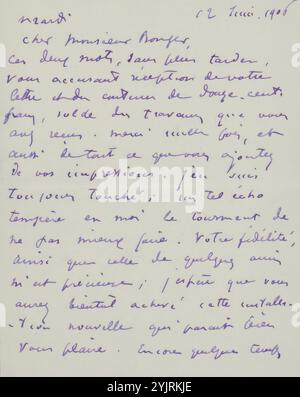 mardi 12 Juin. 1906
Cher Monsieur Bonger,
Ces deux mots, sans plus tarder,
vous accusant réception de votre
lettre et du contenu de douze-cents
francs, solde des travaux que vous
avez reçus. merci mille fois, et
aussi de tout ce que vous ajoutez
de vos impressions. J'en suis
toujours touché; un tel écho
tempère en moi le tourment de
ne pas mieux faire. Votre fidélité,
ainsi que celle de quelques amis
m'est précieuse; j'espère que vous
aurez bientôt achevé cette installa-
-tion nouvelle qui parait bien
vous plaire. Encore quelque temps,
alamy
Image ID: 2YJRKJE
www.alamy.com